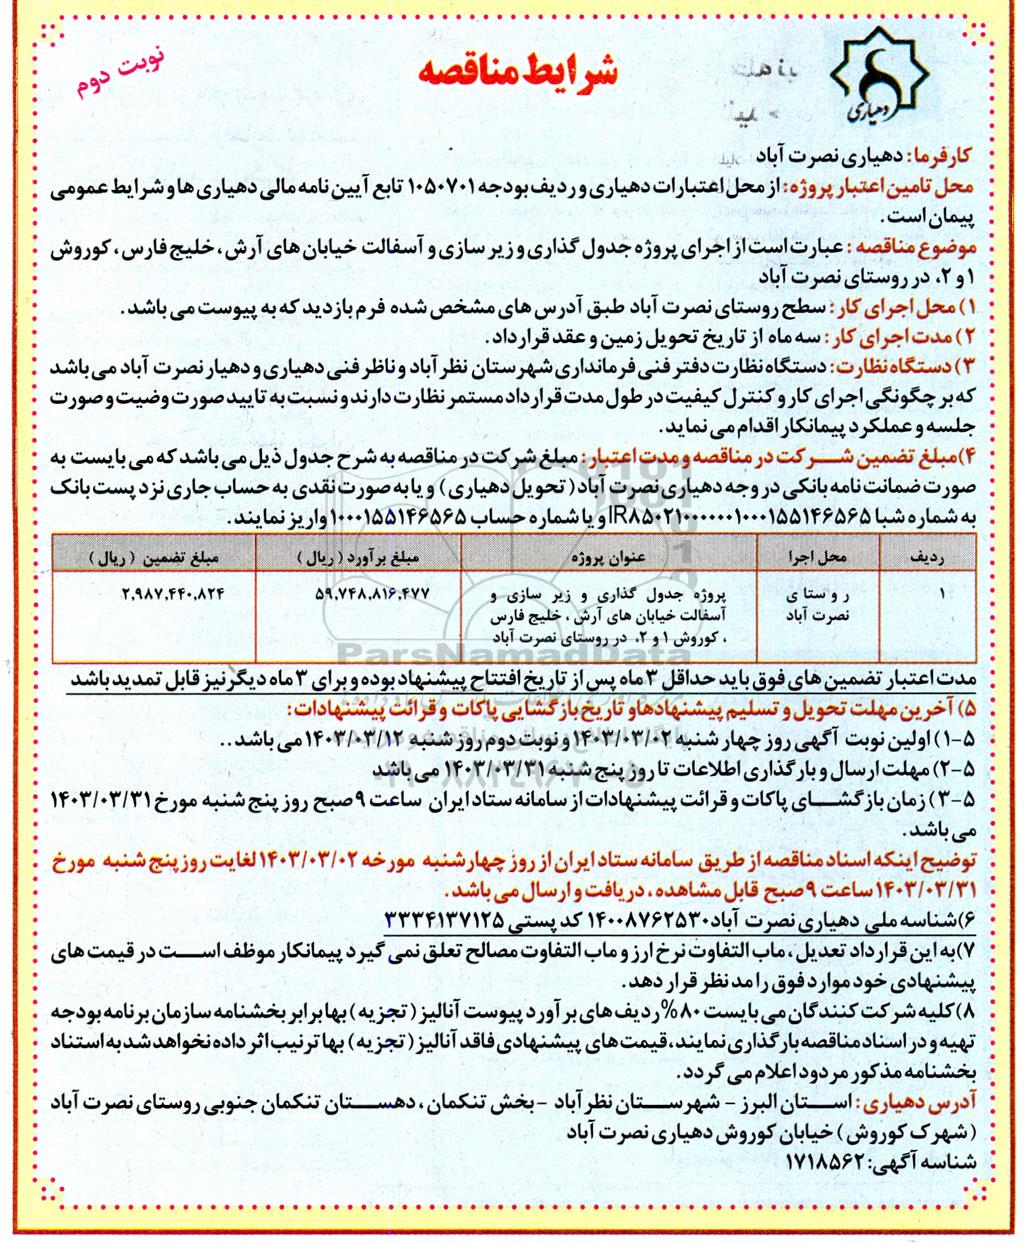 نوبت دوم
شرایط مناقصه
دهیاری
کارفرما: دهیاری نصرت آباد
محل تامین اعتبار پروژه: از محل اعتبارات دهیاری و ردیف بودجه ۱۰۵۰۷۰۱ تابع آیین نامه مالی دهیاری ها و شرایط عمومی
پیمان است.
موضوع مناقصه : عبارت است از اجرای پروژه جدول گذاری و زیر سازی و آسفالت خیابان های آرش ، خلیج فارس ، کوروش
۱ و ۲، در روستای نصرت آباد
۱) محل اجرای کار: سطح روستای نصرت آباد طبق آدرس های مشخص شده فرم بازدید که به پیوست می باشد.
۲) مدت اجرای کار: سه ماه از تاریخ تحویل زمین و عقد قرارداد.
۳) دستگاه نظارت: دستگاه نظارت دفتر فنی فرمانداری شهرستان نظرآباد و ناظر فنی دهیاری و دهیار نصرت آباد می باشد
که بر چگونگی اجرای کار و کنترل کیفیت در طول مدت قرارداد مستمر نظارت دارند و نسبت به تایید صورت وضیت و صورت
جلسه و عملکرد پیمانکار اقدام می نماید.
۴) مبلغ تضمین شرکت در مناقصه و مدت اعتبار: مبلغ شرکت در مناقصه به شرح جدول ذیل می باشد که می بایست به
صورت ضمانت نامه بانکی در وجه دهیاری نصرت آباد ( تحویل دهیاری ) و یا به صورت نقدی به حساب جاری نزد پست بانک
به شماره شبا IR۸۵۰۲۱۰۰۰۰۰۰۱۰۰۰۱۵۵۱۴۶۵۶۵ و یا شماره حساب ۱۰۰۰۱۵۵۱۴۶۵۶۵ واریز نمایند.
ردیف محل اجرا عنوان پروژه مبلغ برآورد ( ریال ) مبلغ تضمین ( ریال )
۱ روستای پروژه جدول گذاری و زیر سازی و ۵۹,۷۴۸,۸۱۶,۴۷۷ ۲,۹۸۷,۴۴۰,۸۲۴
نصرت آباد آسفالت خیابان های آرش ، خلیج فارس
، کوروش ۱ و ۲، در روستای نصرت آباد
ParsNamadData
مدت اعتبار تضمین های فوق باید حداقل ۳ ماه پس از تاریخ افتتاح پیشنهاد بوده و برای ۳ ماه دیگر نیز قابل تمدید باشد
۵) آخرین مهلت تحویل و تسلیم پیشنهادها و تاریخ بازگشایی پاکات و قرائت پیشنهادات:
۵-۱) اولین نوبت آگهی روز چهارشنبه ۱۴۰۳/۰۳/۰۲ و نوبت دوم روز شنبه ۱۴۰۳/۰۳/۱۲ می باشد..
۵-۲) مهلت ارسال و بارگذاری اطلاعات تا روز پنج شنبه ۱۴۰۳/۰۳/۳۱ می باشد
۵-۳) زمان بازگشای پاکات و قرائت پیشنهادات از سامانه ستاد ایران ساعت ۹ صبح روز پنج شنبه مورخ ۱۴۰۳/۰۳/۳۱
می باشد.
توضیح اینکه اسناد مناقصه از طریق سامانه ستاد ایران از روز چهارشنبه مورخه ۱۴۰۳/۰۳/۰۲ لغایت روز پنج شنبه مورخ
۱۴۰۳/۰۳/۳۱ ساعت ۹ صبح قابل مشاهده ، دریافت و ارسال می باشد.
۶) شناسه ملی دهیاری نصرت آباد ۱۴۰۰۸۷۶۲۵۳۰ کد پستی ۳۳۳۴۱۳۷۱۲۵
۷) به این قرارداد تعدیل ، ماب التفاوت نرخ ارز و ماب التفاوت مصالح تعلق نمی گیرد پیمانکار موظف است در قیمت های
پیشنهادی خود موارد فوق را مد نظر قرار دهد.
۸) کلیه شرکت کنندگان می بایست ۸۰% ردیف های برآورد پیوست آنالیز ( تجزیه ) بها برابر بخشنامه سازمان برنامه بودجه
تهیه و در اسناد مناقصه بارگذاری نمایند ، قیمت های پیشنهادی فاقد آنالیز ( تجزیه ) بها ترتیب اثر داده نخواهد شد به استناد
بخشنامه مذکور مردود اعلام می گردد.
آدرس دهیاری: استان البرز - شهرستان نظرآباد - بخش تنکمان ، دهستان تنکمان جنوبی روستای نصرت آباد
(شهرک کوروش ) خیابان کوروش دهیاری نصرت آباد
شناسه آگهی: ۱۷۱۸۵۶۲